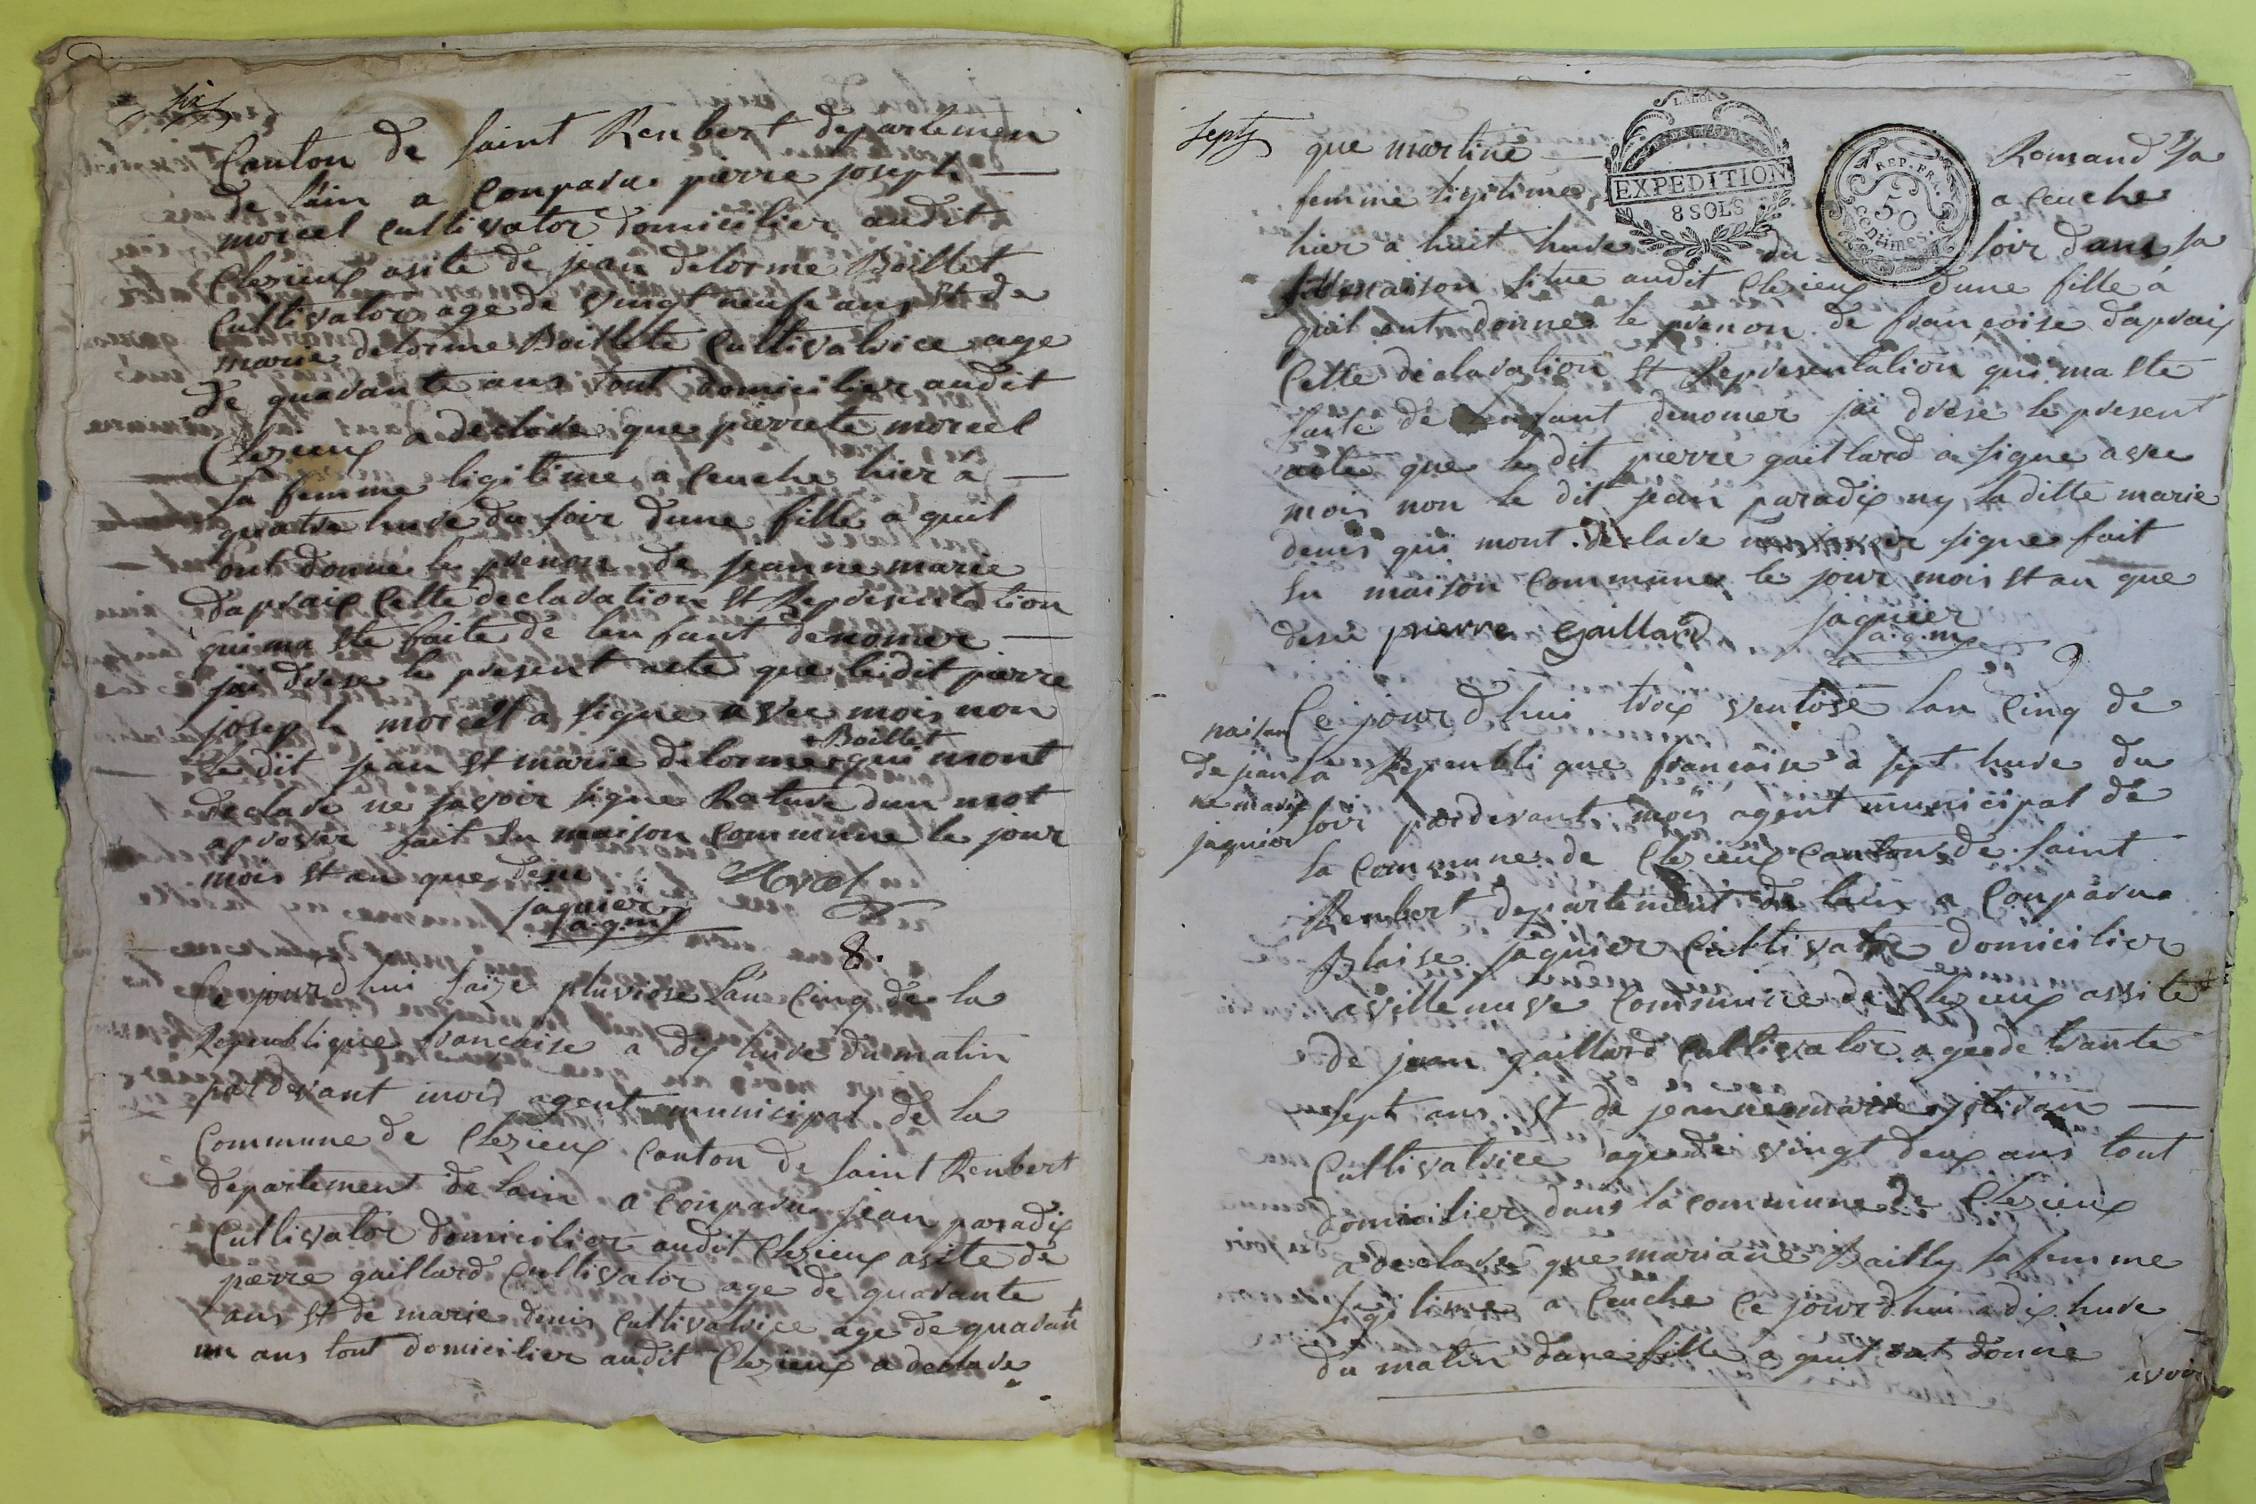 six
Canton de saint Renbert departemen
de l'ain a conparu pierre joseph
morcel cultivator domicilier audit
Clezieux asité de jean delorme Boillet
cultivator age de vingt neuf ans st de
marie delorme Boillete cultivatrice age
de quarante ans tout domicilier audit
Clezieux a declare que pierrete morcel
sa femme ligitime a couche hier a
quatre hure du soir dune fille a quil
ont donné le prenon de jeanne marie
dapraix cette declaration st Represantation
qui ma ste faite de lenfant denomer
jai drese le present acte que ledit pierre
joseph morcel a signe avec mois non
le dit jean st marie delorme + Boillet qui mont
declare ne savoir signe Rature dun mot
aprover fait sn maison commune le jour
mois st an que desu
Morcel
jaquier
a.g.m
8.
Ce jourdhui saize pluviose lan cinq de la
Republique francaise a dix hure du matin
pardevant mois agent municipal de la
Commune de Clezieux canton de saint Renbert
departement de lain a conparu jean paradix
Cultivator domicilier audit Clezieux asité de
pierre gaillard cultivator age de quarante
ans st de marie denis cultivatrice age de quarant
un ans tout domicilier audit Clezieux a declare
septs
que martine Romand sa
femme ligitime a couche
hier a huit hure du soir dans sa
maison situe audit Clezieux dune fille a
quil ont donné le prenon de françoise dapraix
Cette declaration st Represantation qui ma ste
faite de lenfant denomer jai drese le present
acte que le dit pierre gaillard a signe avec
mois non le dit jean paradix ny la ditte marie
denis qui mont declare ne savoir signe fait
sn maison commune le jour mois st an que
desu pierre Gaillard jaquier
a.g.m
LA LOI
EXPEDITION
8 SOLS
REP. FRA.
50
centimes.
naisan
de jean
ne marie
jaquier
Ce jourdhui troix ventose lan cinq de
la Republique francaise a sept hure du
soir pardevant mois agent municipal de
la commune de Clezieux canton de saint
Renbert departement de lain a conparu
Blaise jaquier cultivator domicilier
a villenuve commune de Clezieux assité
de jean gaillard cultivator age de trante
sept ans st de jeanne marie
Cultivatrice age de vingt deux ans tout
domicilier dans la commune de Clezieux
a declare que mariane Bailly sa femme
ligitime a couche ce jourdhui a dix hure
du matin dune fille a quil ont donné